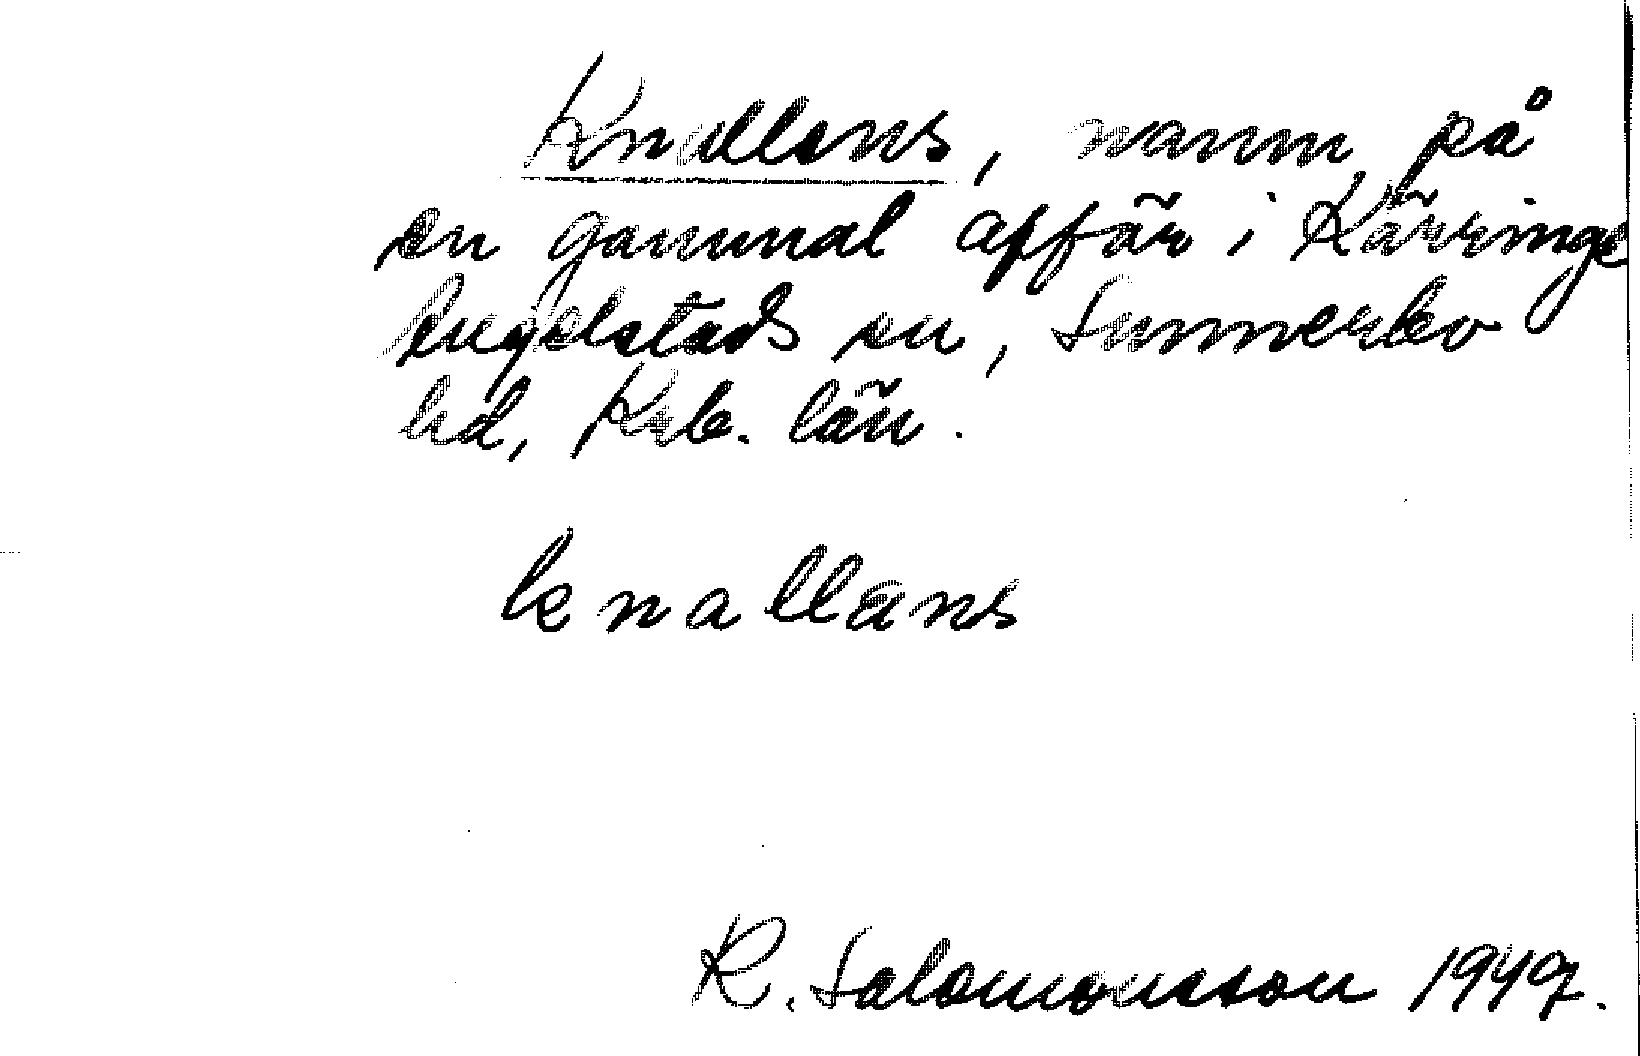 Knallens, namn på
en gammal affär i Kärringe
Ingelstads sn, Sunnerbo
hd, Krb. län.
knallens
R. Salomonsson 1949.